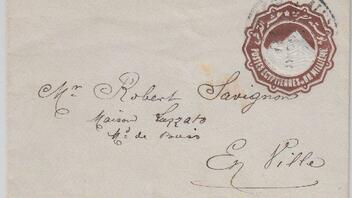 POSTES EGYPTIENNES
UN MILLIEME
Mr Robert Savignon
Maison Lazzato
Md de Bois
En Ville